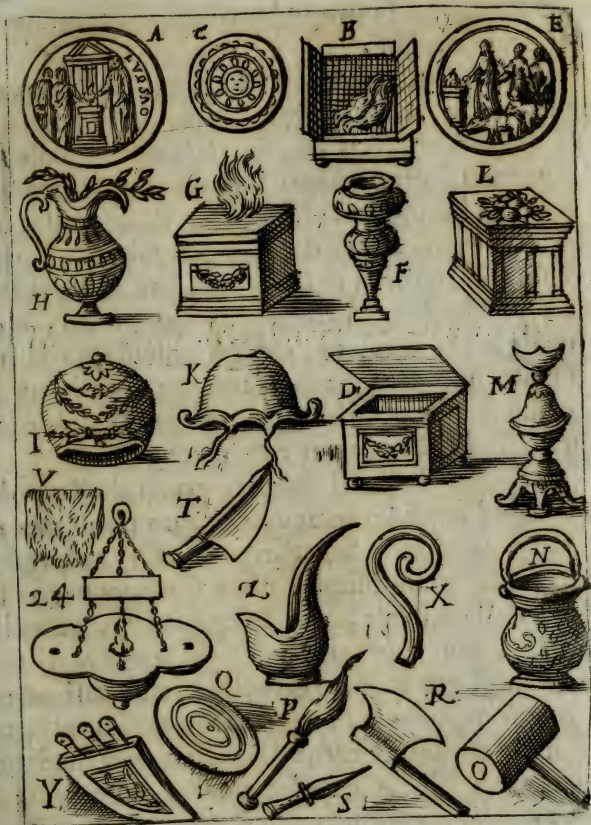 A C B E
G F L
H
K D M
I
V T
24 Z X N
Q P R
Y S O